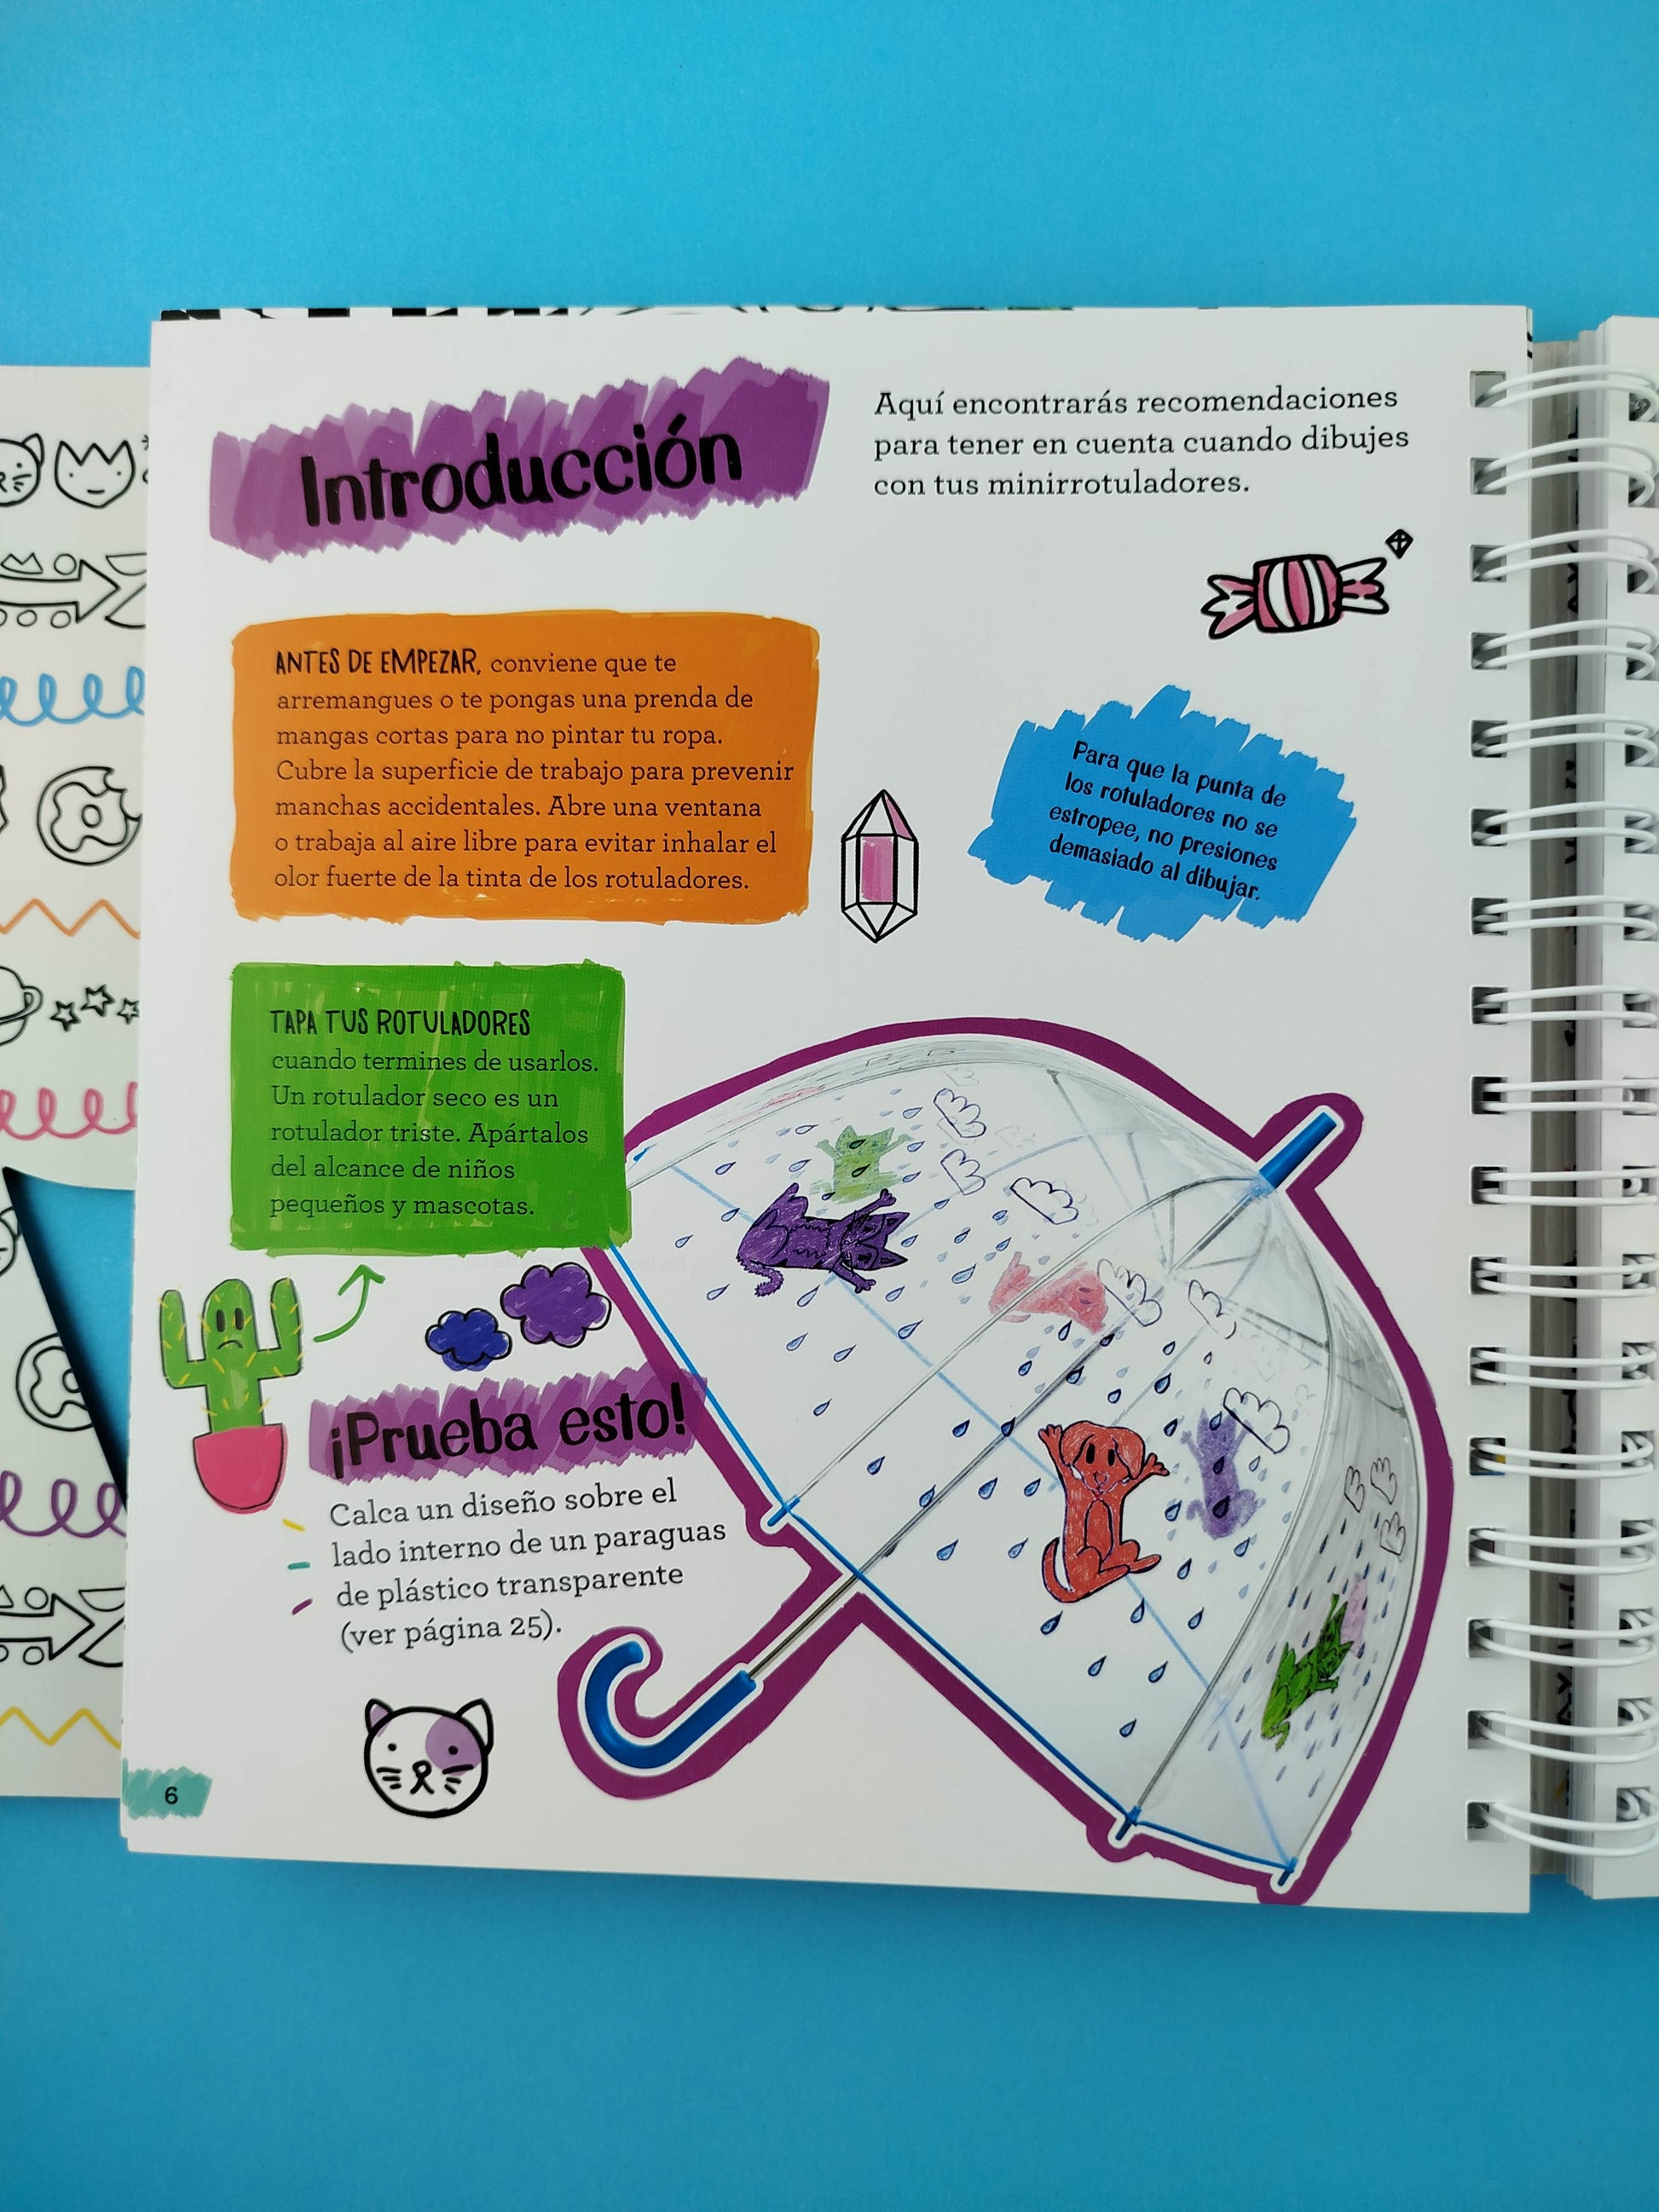 Introducción
Aquí encontrarás recomendaciones
para tener en cuenta cuando dibujes
con tus minirrotuladores.
ANTES DE EMPEZAR, conviene que te
arremangues o te pongas una prenda de
mangas cortas para no pintar tu ropa.
Cubre la superficie de trabajo para prevenir
manchas accidentales. Abre una ventana
o trabaja al aire libre para evitar inhalar el
olor fuerte de la tinta de los rotuladores.
Para que la punta de
los rotuladores no se
estropee, no presiones
demasiado al dibujar.
TAPA TUS ROTULADORES
cuando termines de usarlos.
Un rotulador seco es un
rotulador triste. Apártalos
del alcance de niños
pequeños y mascotas.
¡Prueba esto!
Calca un diseño sobre el
lado interno de un paraguas
de plástico transparente
(ver página 25).
6